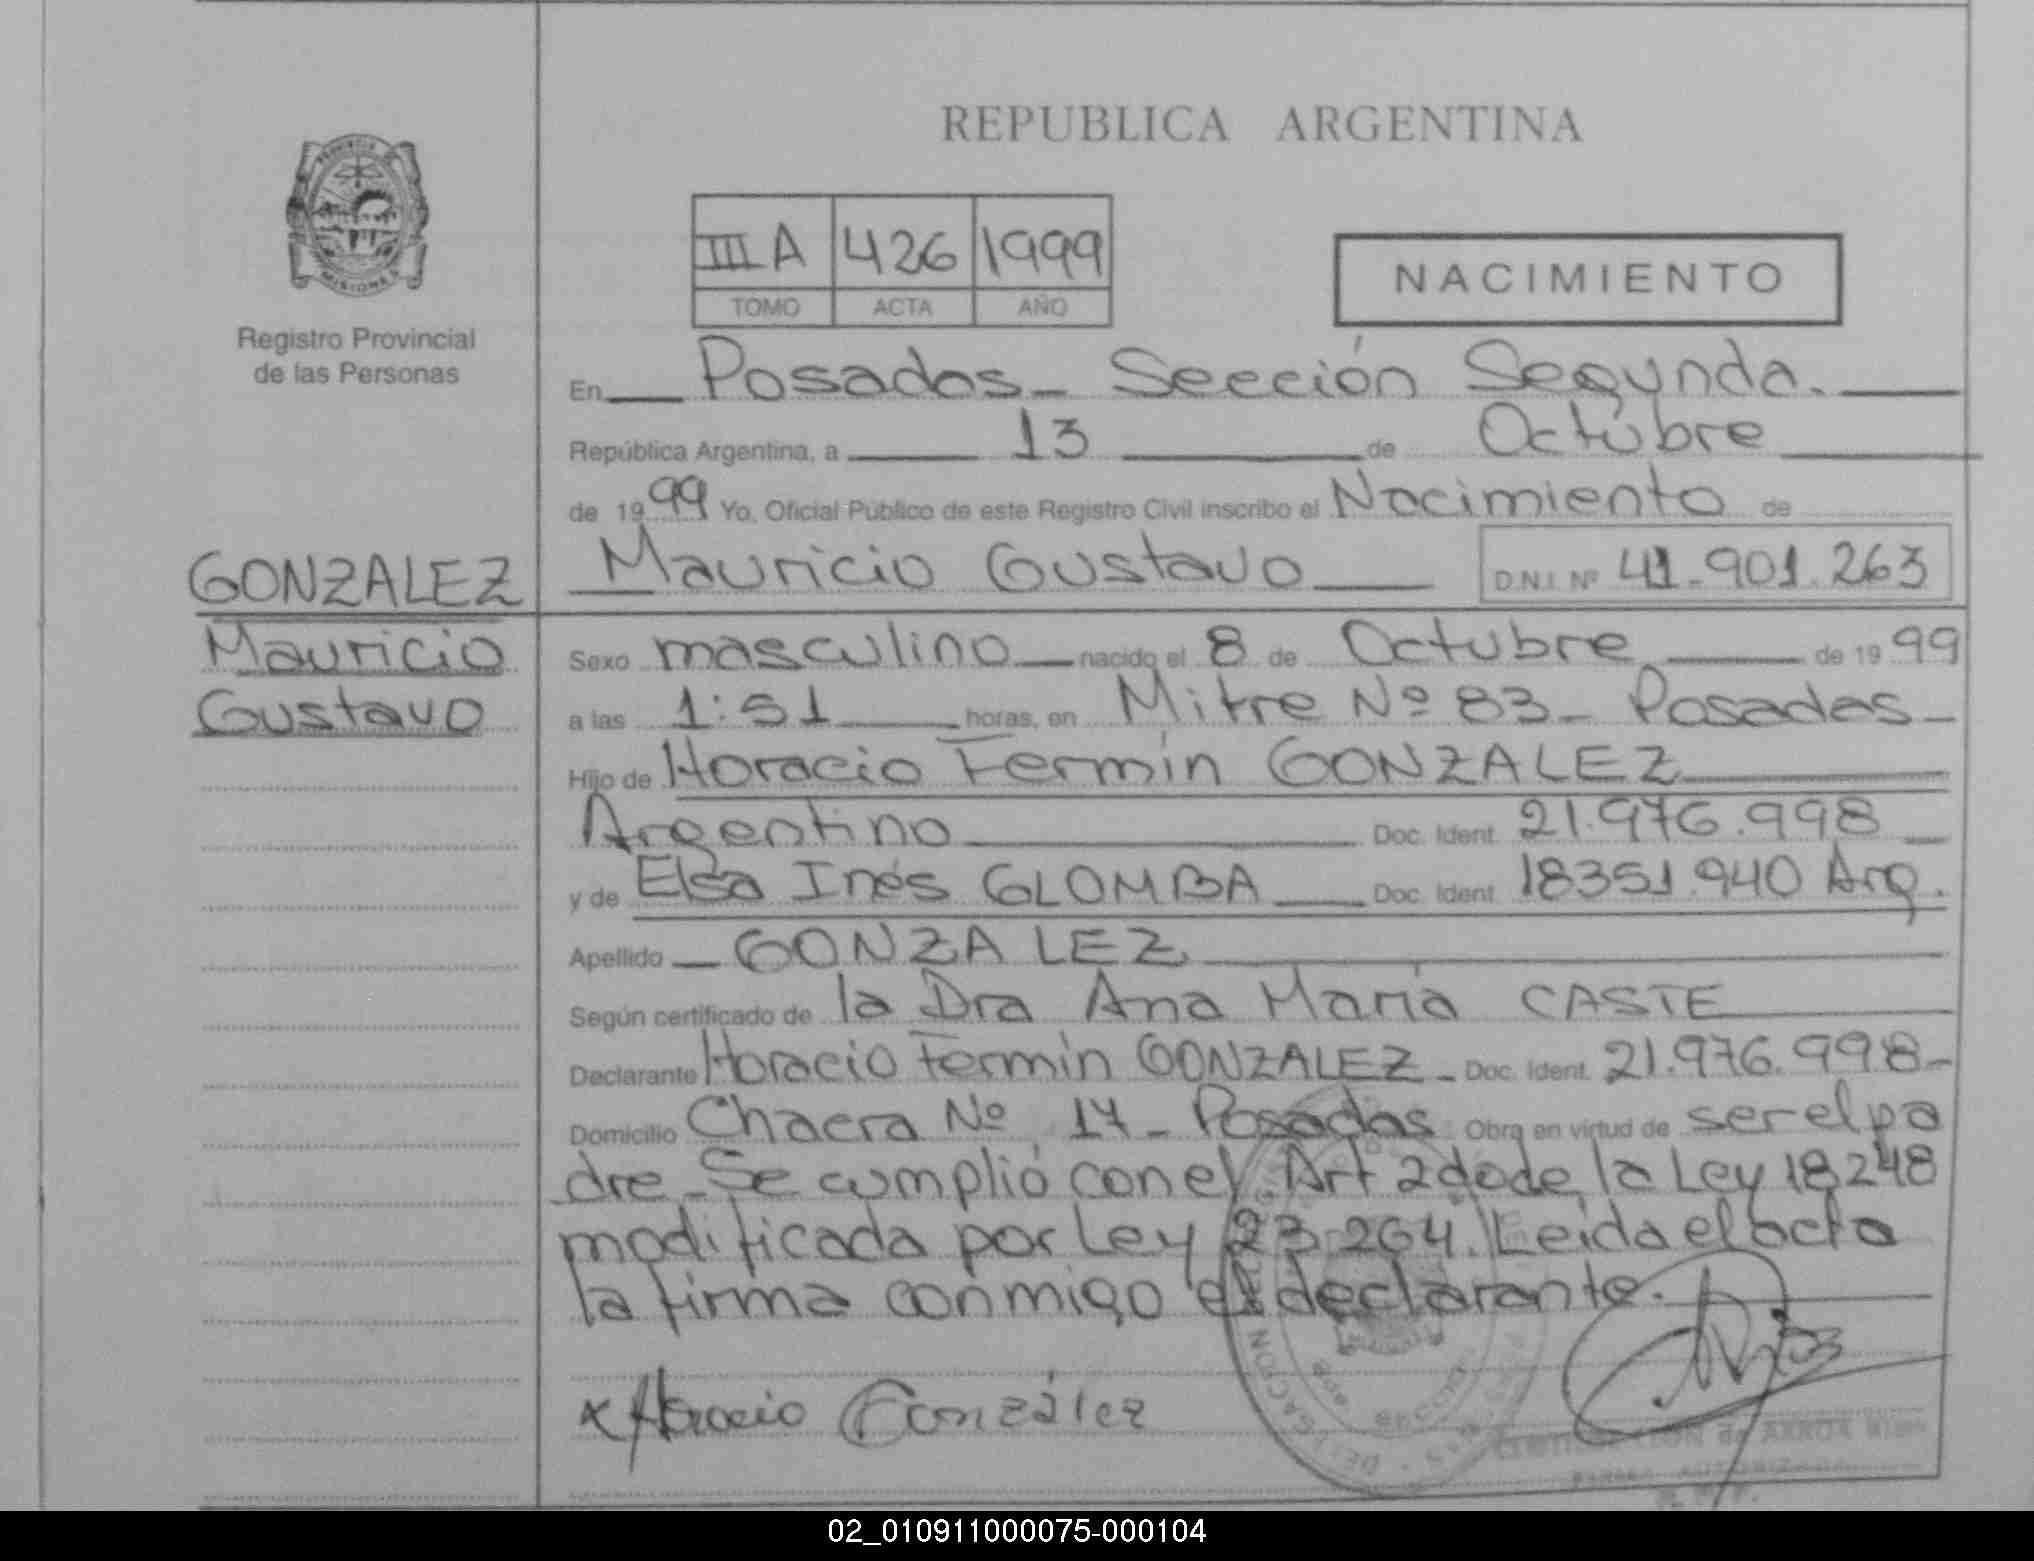 REPUBLICA ARGENTINA
PROVINCIA DE MISIONES
Registro Provincial
de las Personas
III A 426 1999
TOMO ACTA AÑO
NACIMIENTO
En Posadas - Sección Segunda.
República Argentina, a 13 de Octubre
de 1999 Yo, Oficial Público de este Registro Civil inscribo el Nacimiento de
Mauricio Gustavo D.N.I. Nº 41.901.263
GONZALEZ
Mauricio
Gustavo
Sexo masculino nacido el 8 de Octubre de 1999
a las 1:51 horas, en Mitre Nº 83 - Posadas -
Hijo de Horacio Fermín GONZALEZ
Argentino Doc. Ident. 21.976.998
y de Elsa Inés GLOMBA Doc. Ident. 18351.940 Arg.
Apellido GONZALEZ
Según certificado de la Dra Ana María CASTE
Declarante Horacio Fermín GONZALEZ - Doc. Ident. 21.976.998 -
Domicilio Chacra Nº 17 - Posadas Obra en virtud de ser el pa
dre - Se cumplió con el Art 2do de la Ley 18248
modificada por Ley 23.264. Leida el acta
la firma conmigo el declarante.
x Horacio González
02_010911000075-000104